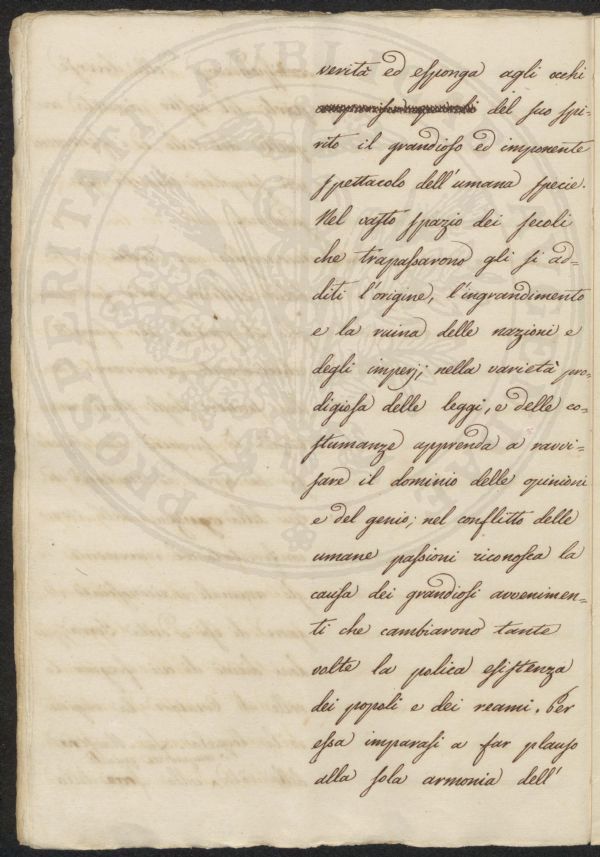 verità ed esponga agli occhi
del suo spi-
rito il grandioso ed imponente
spettacolo dell'umana specie.
Nel vasto spazio dei secoli
che trapassarono gli si ad=
diti l'origine, l'ingrandimento
e la ruina delle nazioni e
degli imperj; nella varietà pro-
digiosa delle leggi, e delle co-
stumanze apprenda a ravvi-
sare il dominio delle opinioni
e del genio; nel conflitto delle
umane passioni riconosca la
causa dei grandiosi avvenimen-
ti che cambiarono tante
volte la polica esistenza
dei popoli e dei reami. Per
essa imparasi a far plauso
alla sola armonia dell'
PROSPERITATI PUBLICAE